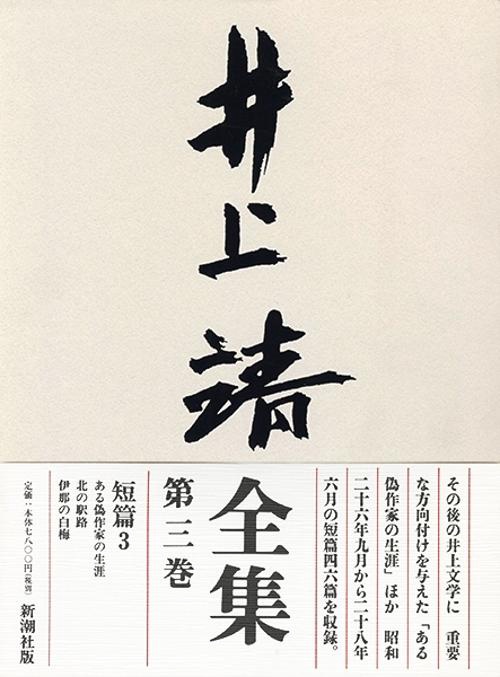 井上靖
全集
第三巻
その後の井上文学に 重要
な方向付けを与えた「ある
偽作家の生涯」ほか 昭和
二十六年九月から二十八年
六月の短篇四六篇を収録。
短篇3
ある偽作家の生涯
北の駅路
伊那の白梅
定価：本体七八〇〇円(税別)
新潮社版